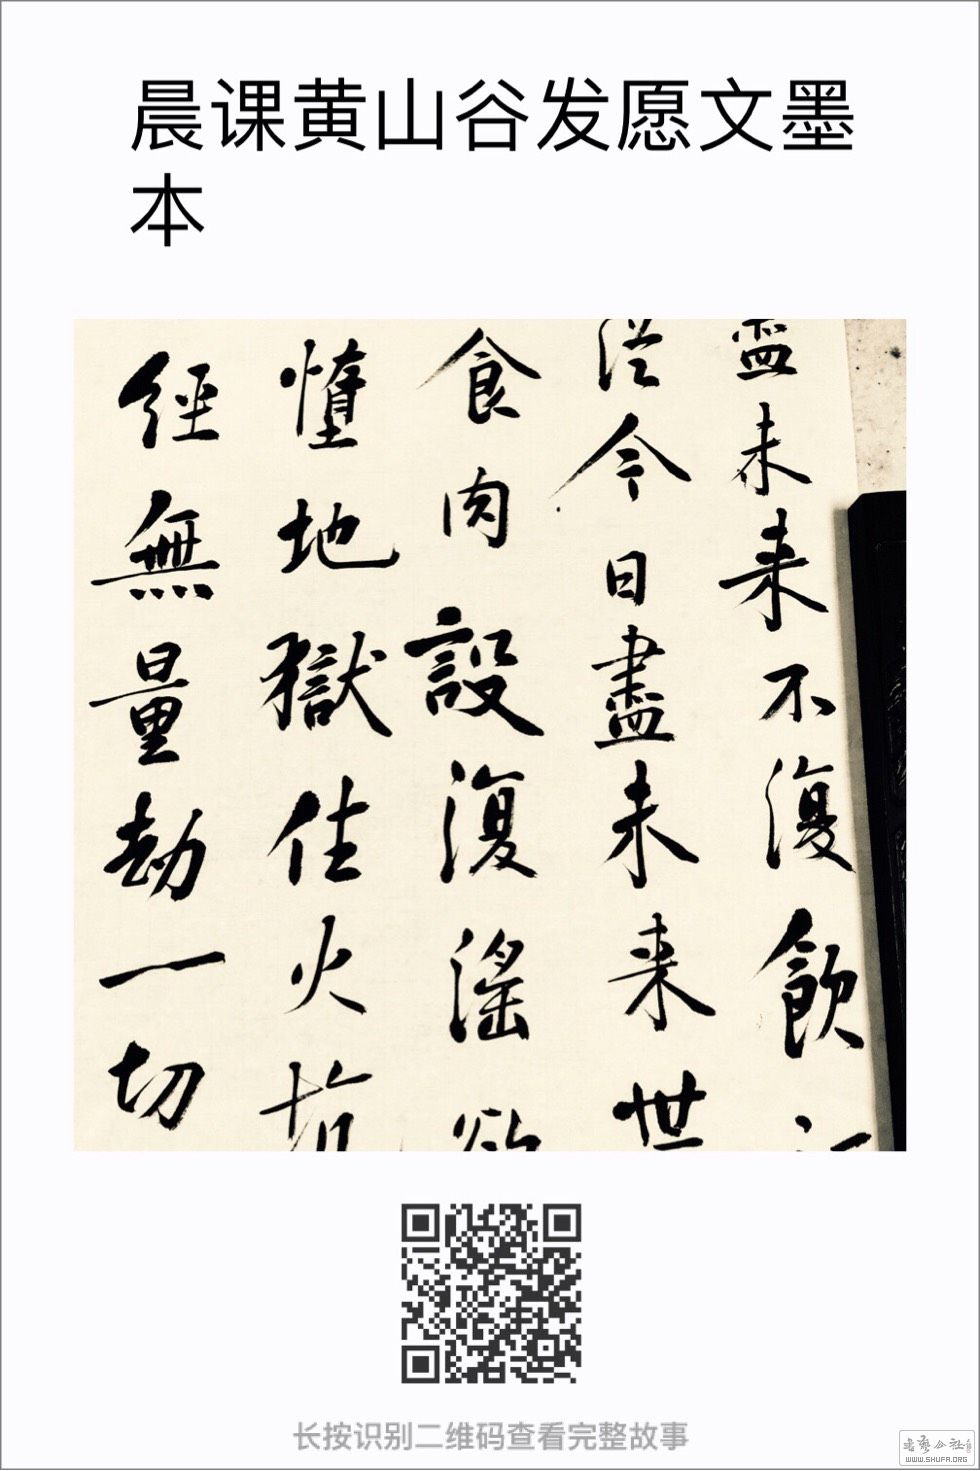 晨课黄山谷发愿文墨
本
盡未来不復飲
従今日盡未来世
食肉設復滛欲
憧地獄住火坑
經無量劫一切
长按识别二维码查看完整故事
书艺公社
WWW.SHUFA.ORG